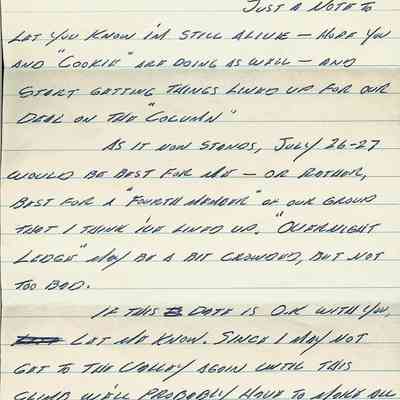 JUST A NOTE TO
LET YOU KNOW I'M STILL ALIVE – HOPE YOU
AND "COOKIE" ARE DOING AS WELL – AND
START GETTING THINGS LINED UP FOR OUR
DEAL ON THE "COLUMN"
AS IT NOW STANDS, JULY 26-27
WOULD BE BEST FOR ME – OR RATHER,
BEST FOR A "FOURTH MEMBER" OF OUR GROUP
THAT I THINK I'VE LINED UP. "OVERNIGHT
LEDGE" MAY BE A BIT CROWDED, BUT NOT
TOO BAD.
IF THIS DATE IS O.K WITH YOU,
LET ME KNOW. SINCE I MAY NOT
GET TO THE VALLEY AGAIN UNTIL THIS
CLIMB WE'LL PROBABLY HAVE TO MAKE ALL